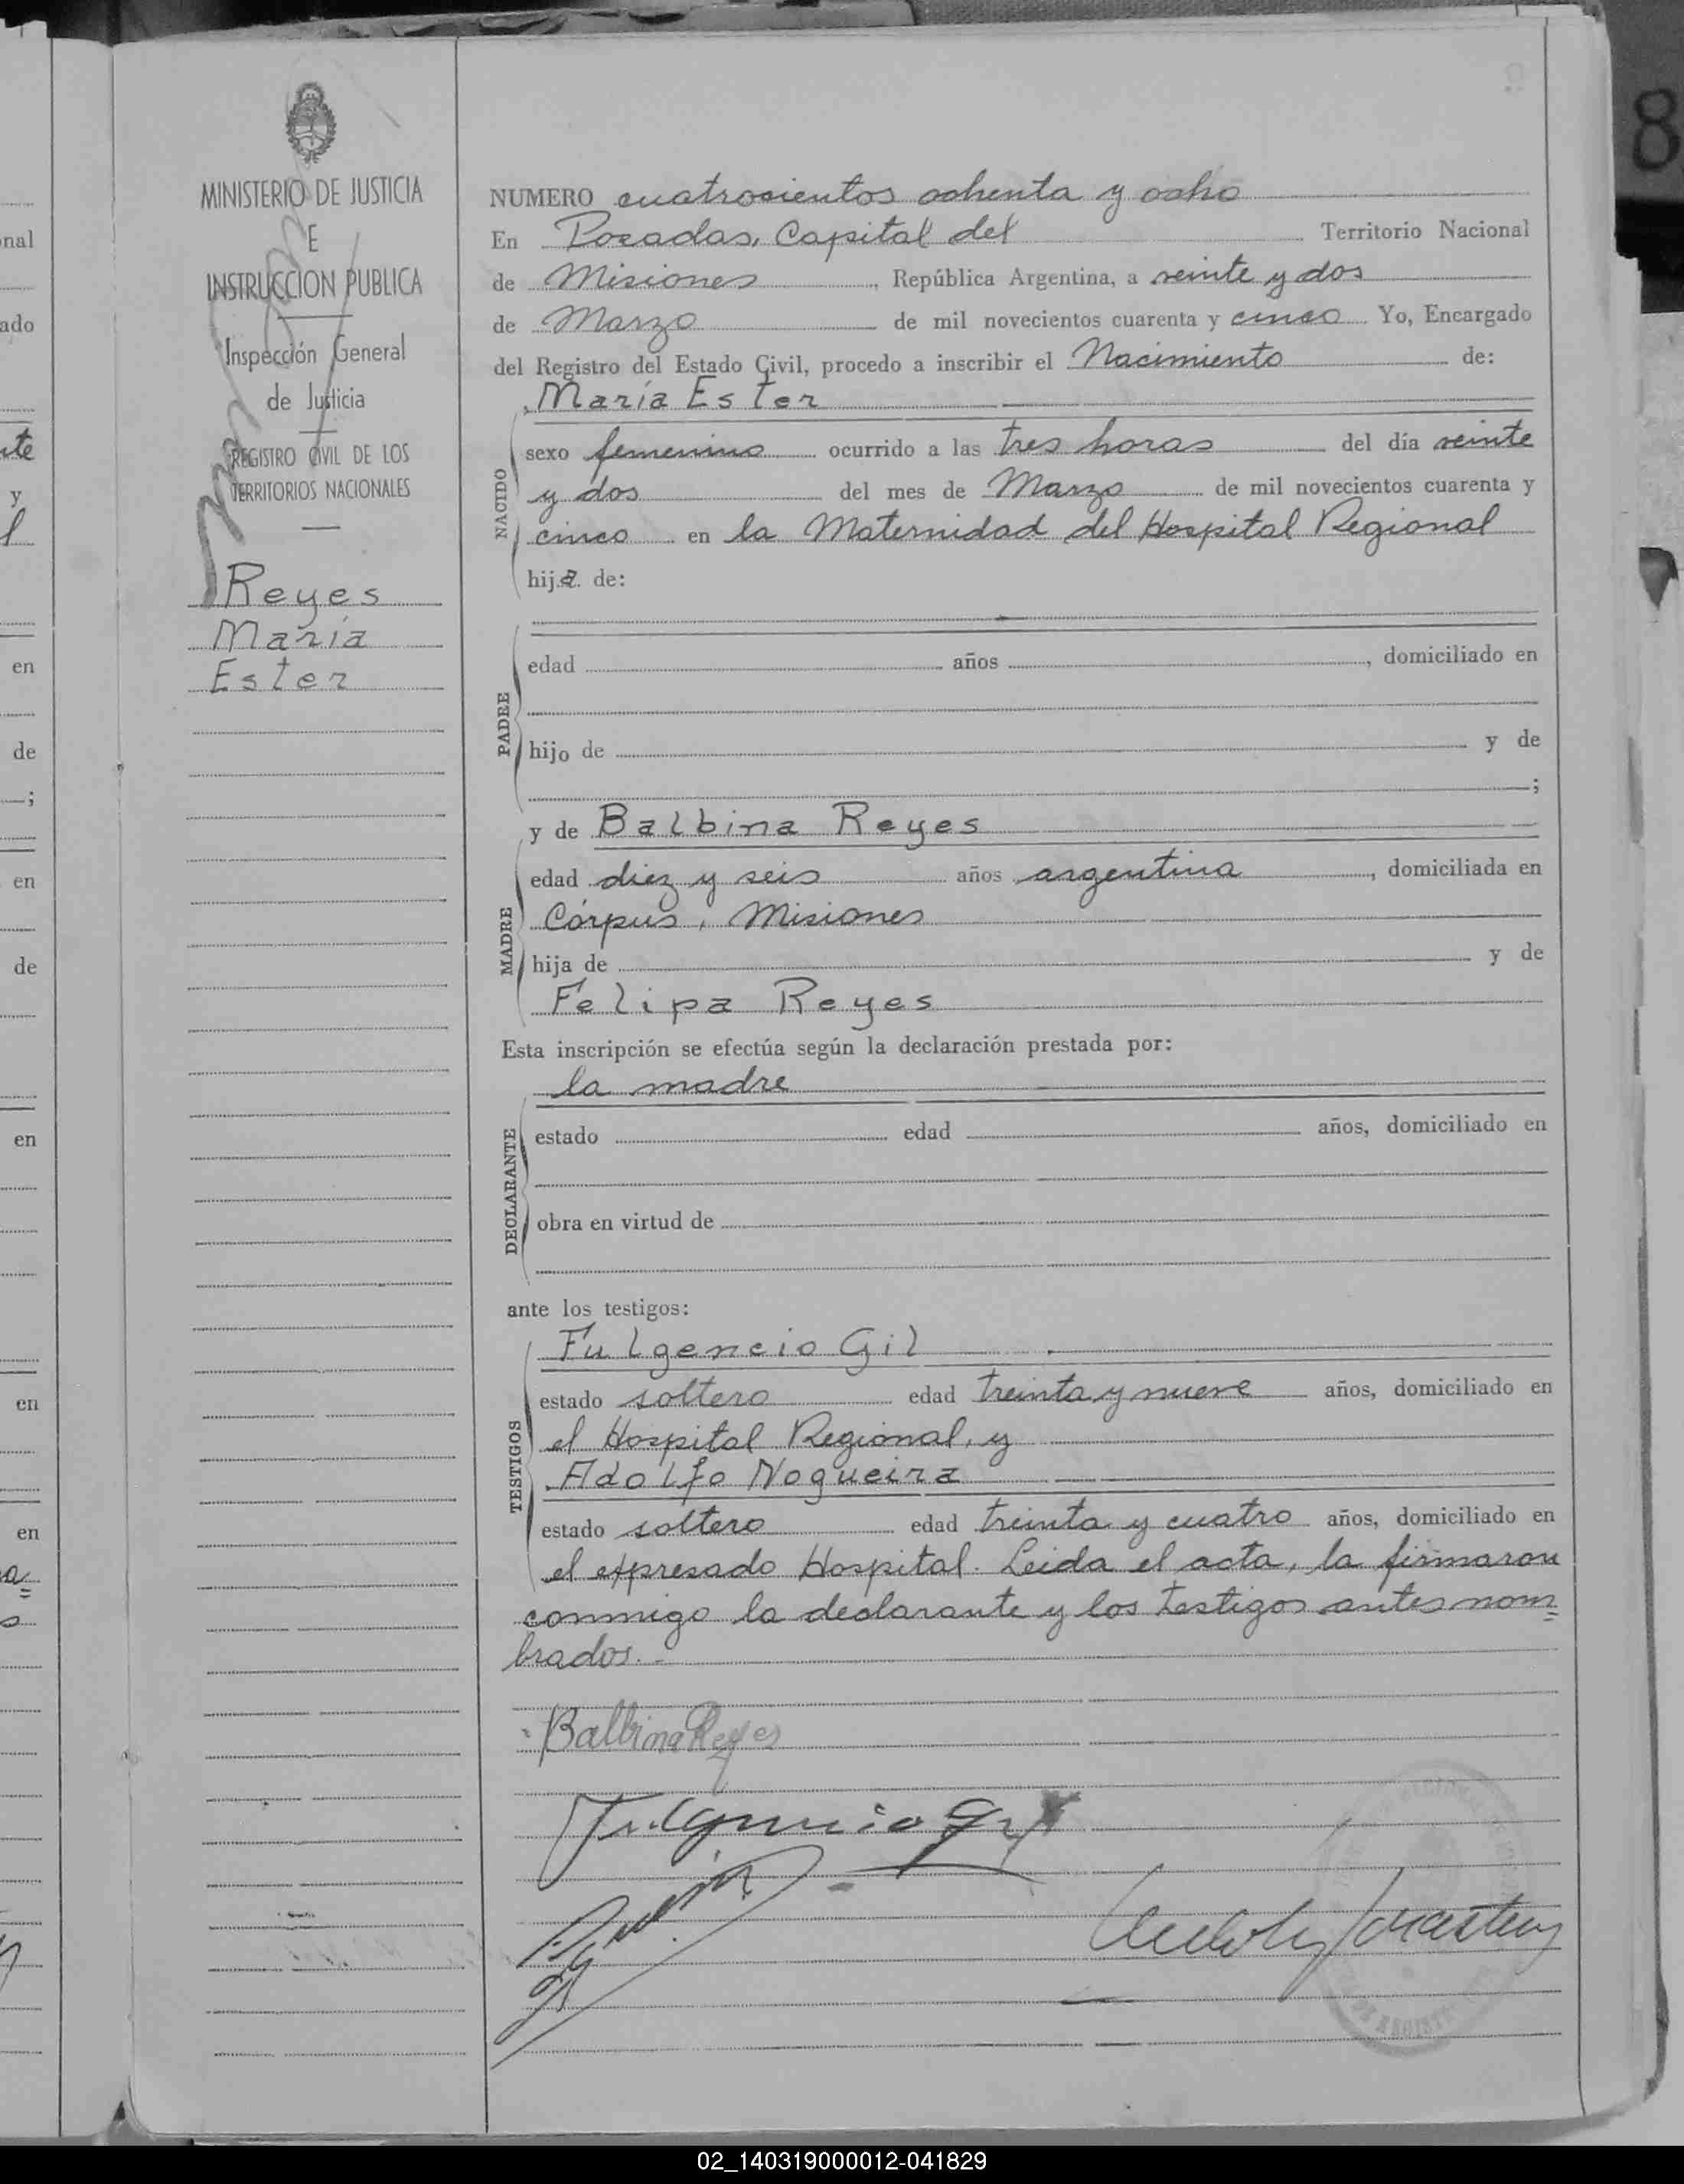 MINISTERIO DE JUSTICIA
E
INSTRUCCION PUBLICA
Inspección General
de Justicia
REGISTRO CIVIL DE LOS
TERRITORIOS NACIONALES
Reyes
María
Ester
NUMERO cuatrocientos ochenta y ocho
En Posadas, Capital del Territorio Nacional
de Misiones, República Argentina, a veinte y dos
de Marzo de mil novecientos cuarenta y cinco Yo, Encargado
del Registro del Estado Civil, procedo a inscribir el Nacimiento de:
María Ester
NACIDO
sexo femenino ocurrido a las tres horas del día veinte
y dos del mes de Marzo de mil novecientos cuarenta y
cinco en la Maternidad del Hospital Regional
hija de:
PADRE
edad años, domiciliado en
hijo de y de
;
y de Balbina Reyes
MADRE
edad diez y seis años argentina, domiciliada en
Córpus, Misiones
hija de y de
Felipa Reyes
Esta inscripción se efectúa según la declaración prestada por:
la madre
DECLARANTE
estado edad años, domiciliado en
obra en virtud de
ante los testigos:
Fulgencio Gil
TESTIGOS
estado soltero edad treinta y nueve años, domiciliado en
el Hospital Regional, y
Adolfo Nogueira
estado soltero edad treinta y cuatro años, domiciliado en
el expresado Hospital. Leida el acta, la firmaron
conmigo la declarante y los testigos antes nom=
brados.-
Balbina Reyes
Fulgencio Gil
8
nal
ado
y
en
de
;
en
de
en
en
en
02_140319000012-041829